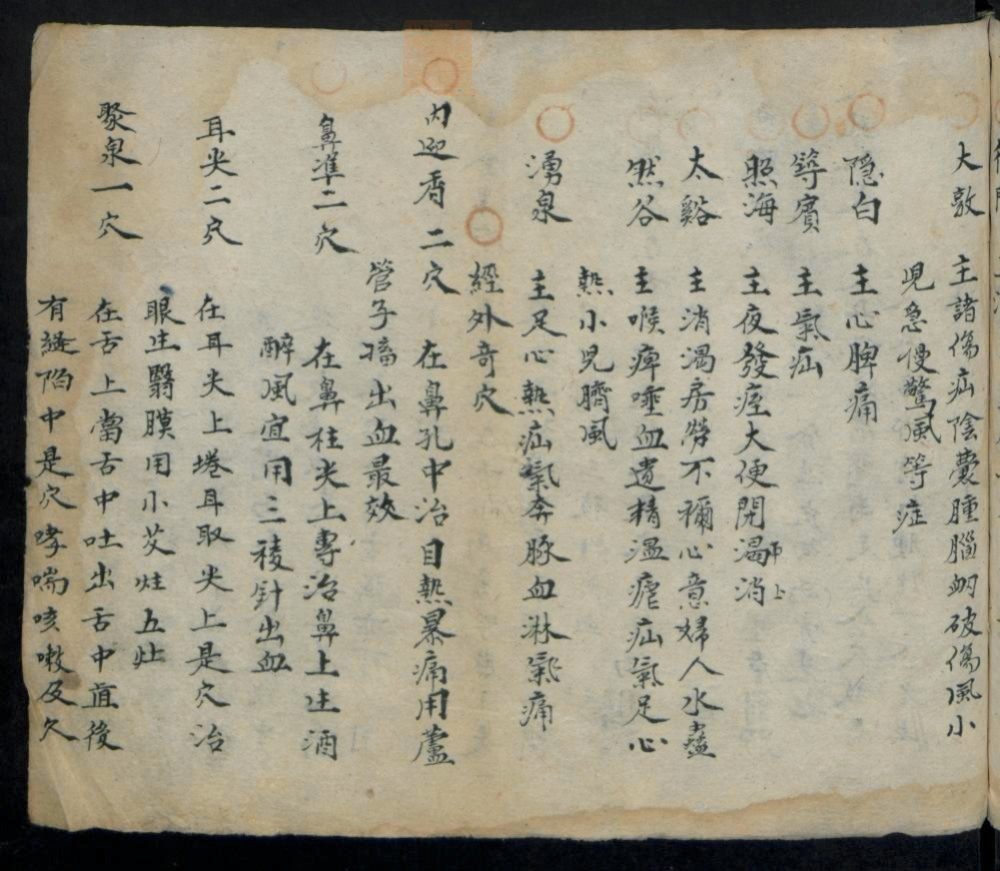 大敦 主諸傷疝陰囊腫腦衂破傷風小
兒急慢驚風等症
隐白 主心脾痛
築賓 主氣疝
照海 主夜發痓大便閉渴消
太谿 主消渴房勞不禰心意婦人水蠱
然谷 主喉痺唾血遺精溫瘧疝氣足心
熱小兒臍風
湧泉 主足心熱疝氣奔豚血淋氣痛
經外奇穴
內迎香二穴 在鼻孔中治目熱暴痛用蘆
管子搐出血最效
鼻準二穴 在鼻柱尖上專治鼻上生酒
醉風宜用三稜針出血
耳尖二穴 在耳尖上捲耳取尖上是穴治
眼生翳膜用小艾炷五炷
聚泉一穴 在舌上當舌中吐出舌中直後
有縫陷中是穴哮喘咳嗽及久